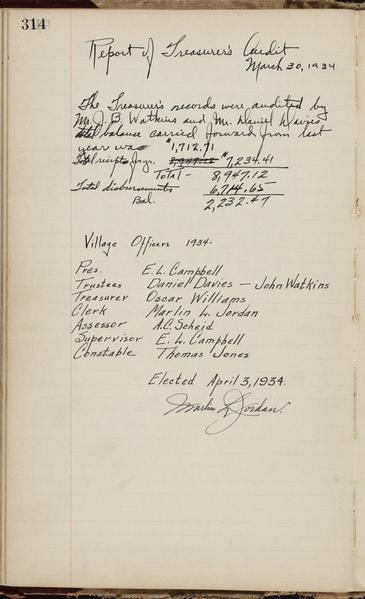 314
Report of Treasurer's Audit
March 30, 1934
The Treasurer's records were audited by
Mr. J. B. Watkins and Mr. Daniel Davies
balance carried forward from last
year was $1,712.71
Total receipts for yr. 8,947.12 $7,234.41
Total - 8,947.12
Total disbursements 6,714.65
Bal. 2,232.47
Village Officers 1934.
Pres. E. L. Campbell
Trustees Daniel Davies - John Watkins
Treasurer Oscar Williams
Clerk Marlin L. Jordan
Assessor A.C. Scheid
Supervisor E. L. Campbell
Constable Thomas Jones
Elected April 3, 1934.
Marlin L. Jordan.